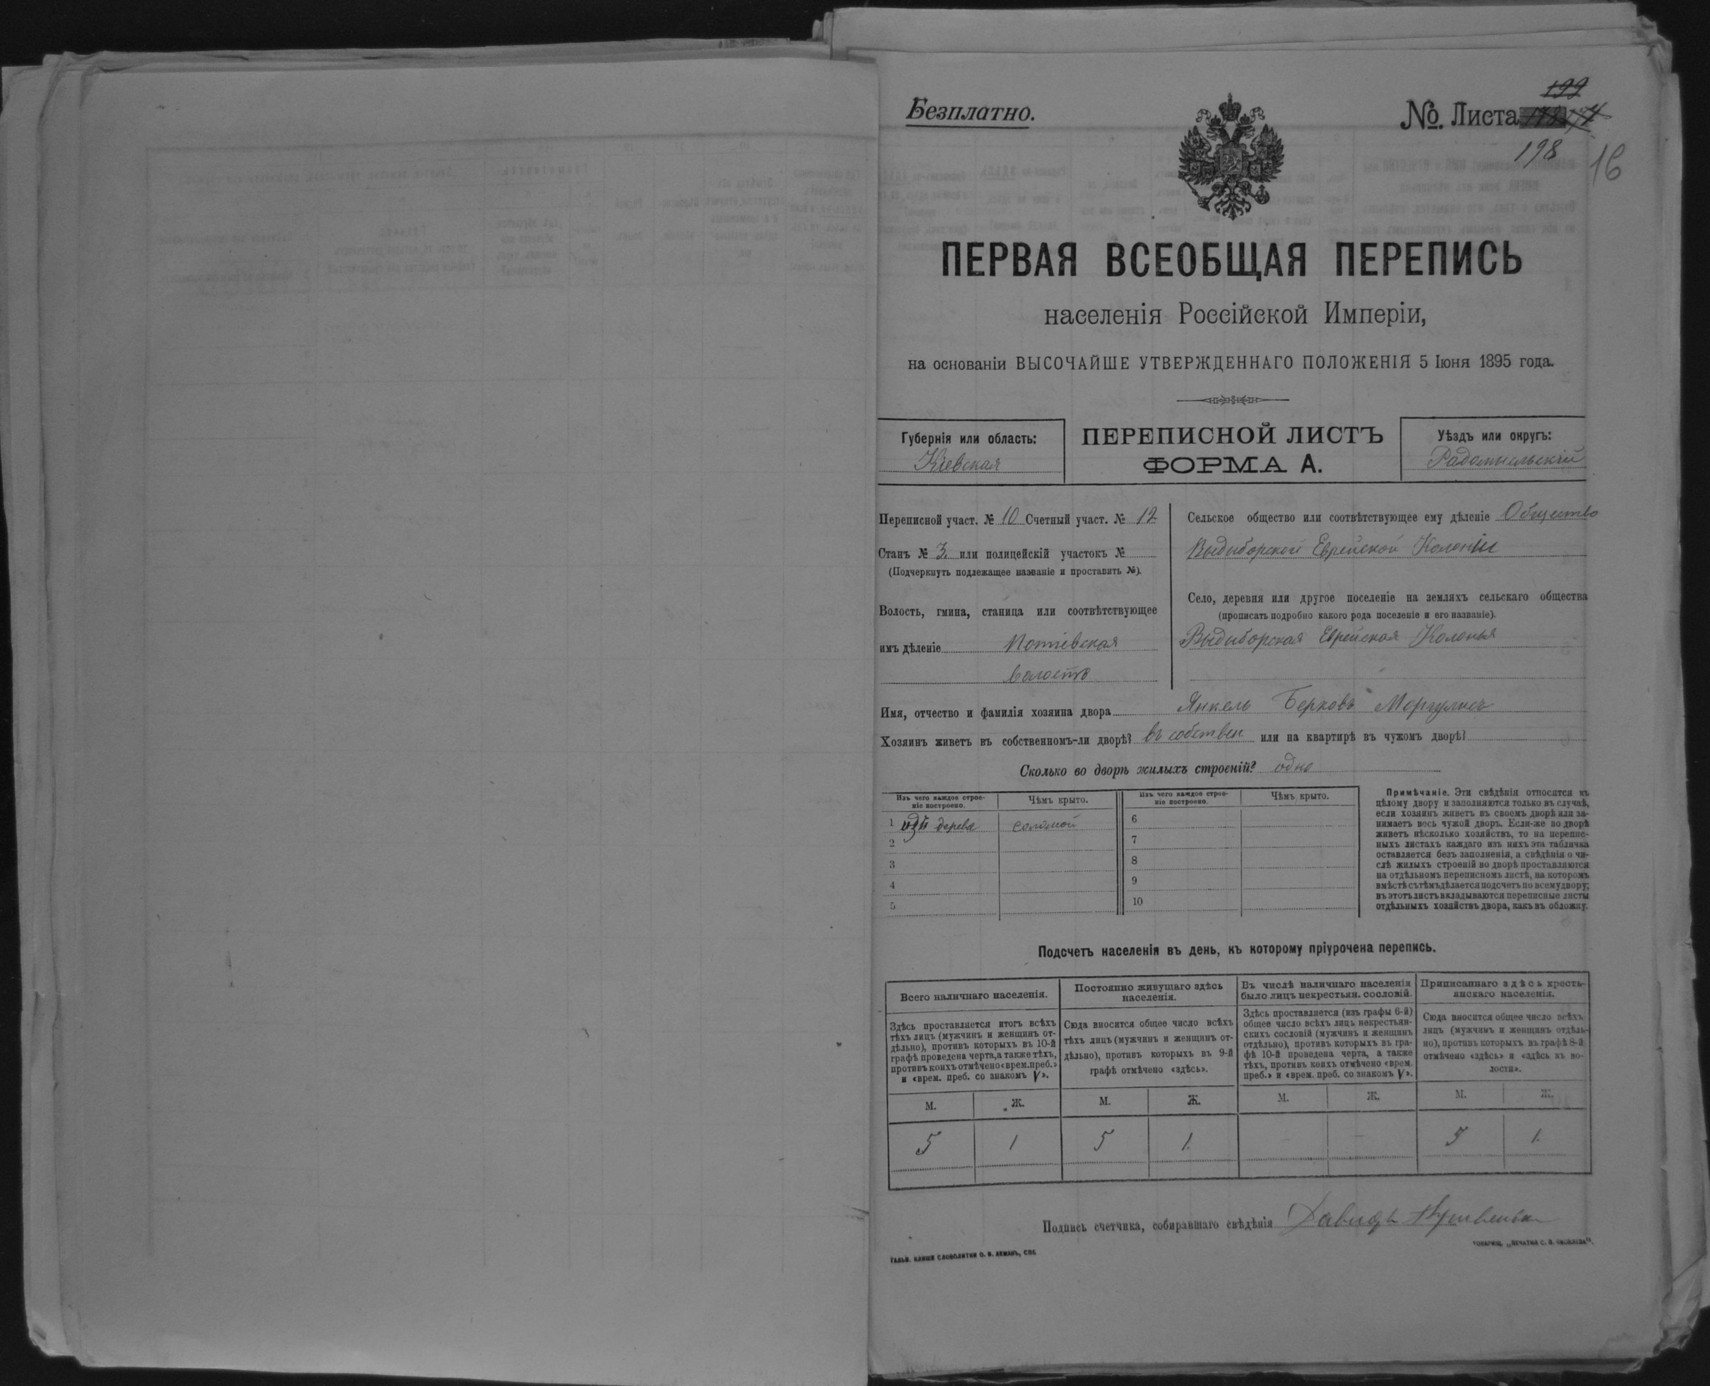 Безплатно.
№. Листа
199
198
16
ПЕРВАЯ ВСЕОБЩАЯ ПЕРЕПИСЬ
населенія Россійской Имперіи,
на основаніи ВЫСОЧАЙШЕ УТВЕРЖДЕННАГО ПОЛОЖЕНІЯ 5 Іюня 1895 года.
Губернія или область:
Кіевская
ПЕРЕПИСНОЙ ЛИСТЪ
ФОРМА А.
Уѣздъ или округъ:
Радомысльскій
Переписной участ. № 10 Счетный участ. № 12
Станъ № 3. или полицейскій участокъ №
(Подчеркнуть подлежащее названіе и проставить №).
Волость, гмина, станица или соотвѣтствующее
имъ дѣленіе Потіевская
волость
Сельское общество или соотвѣтствующее ему дѣленіе Общество
Выдыборской Еврейской Колоніи
Село, деревня или другое поселеніе на земляхъ сельскаго общества
(прописать подробно какого рода поселеніе и его названіе).
Выдыборская Еврейская Колонья
Имя, отчество и фамилія хозяина двора Янкель Берковъ Моргулисъ
Хозяинъ живетъ въ собственномъ-ли дворѣ? въ собствен или на квартирѣ въ чужомъ дворѣ?
Сколько во дворѣ жилыхъ строеній? одно
Изъ чего каждое строе-
ніе построено.
Чѣмъ крыто.
Изъ чего каждое строе-
ніе построено.
Чѣмъ крыто.
1 изъ дерева соломой
2
3
4
5
6
7
8
9
10
Примѣчаніе. Эти свѣдѣнія относятся къ
цѣлому двору и заполняются только въ случаѣ,
если хозяинъ живетъ въ своемъ дворѣ или за-
нимаетъ весь чужой дворъ. Если-же во дворѣ
живетъ нѣсколько хозяйствъ, то на перепис-
ныхъ листахъ каждаго изъ нихъ эта табличка
оставляется безъ заполненія, а свѣдѣнія о чи-
слѣ жилыхъ строеній во дворѣ проставляются
на отдѣльномъ переписномъ листѣ, на которомъ
вмѣстѣ съ тѣмъ дѣлается подсчетъ по всему двору;
въ этотъ листъ вкладываются переписные листы
отдѣльныхъ хозяйствъ двора, какъ въ обложку.
Подсчетъ населенія въ день, къ которому пріурочена перепись.
Всего наличнаго населенія.
Здѣсь проставляется итогъ всѣхъ
тѣхъ лицъ (мужчинъ и женщинъ от-
дѣльно), противъ которыхъ въ 10-й
графѣ проведена черта, а также тѣхъ,
противъ коихъ отмѣчено «врем. преб.»
и «врем. преб. со знакомъ V».
Постоянно живущаго здѣсь
населенія.
Сюда вносится общее число всѣхъ
тѣхъ лицъ (мужчинъ и женщинъ от-
дѣльно), противъ которыхъ въ 9-й
графѣ отмѣчено «здѣсь».
Въ числѣ наличнаго населенія
было лицъ некрестьян. сословій.
Здѣсь проставляется (изъ графы 6-й)
общее число всѣхъ лицъ некрестьян-
скихъ сословій (мужчинъ и женщинъ
отдѣльно), противъ которыхъ въ гра-
фѣ 10-й проведена черта, а также
тѣхъ, противъ коихъ отмѣчено «врем.
преб.» и «врем. преб. со знакомъ V».
Приписаннаго здѣсь кресть-
янскаго населенія.
Сюда вносится общее число всѣхъ
лицъ (мужчинъ и женщинъ отдѣль-
но), противъ которыхъ въ графѣ 8-й
отмѣчено «здѣсь» и «здѣсь въ во-
лости».
М. Ж. М. Ж. М. Ж. М. Ж.
5 1 5 1 - - 5 1
Подпись счетчика, собиравшаго свѣдѣнія Давидъ